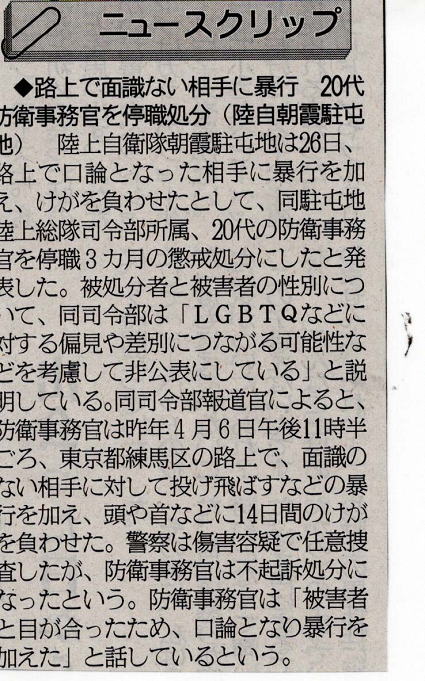 ニュースクリップ
◆路上で面識ない相手に暴行　20代
防衛事務官を停職処分（陸自朝霞駐屯
地）　陸上自衛隊朝霞駐屯地は26日、
路上で口論となった相手に暴行を加
え、けがを負わせたとして、同駐屯地
陸上総隊司令部所属、20代の防衛事務
官を停職３カ月の懲戒処分にしたと発
表した。被処分者と被害者の性別につ
いて、同司令部は「ＬＧＢＴＱなどに
対する偏見や差別につながる可能性な
どを考慮して非公表にしている」と説
明している。同司令部報道官によると、
防衛事務官は昨年４月６日午後11時半
ごろ、東京都練馬区の路上で、面識の
ない相手に対して投げ飛ばすなどの暴
行を加え、頭や首などに14日間のけが
を負わせた。警察は傷害容疑で任意捜
査したが、防衛事務官は不起訴処分に
なったという。防衛事務官は「被害者
と目が合ったため、口論となり暴行を
加えた」と話しているという。